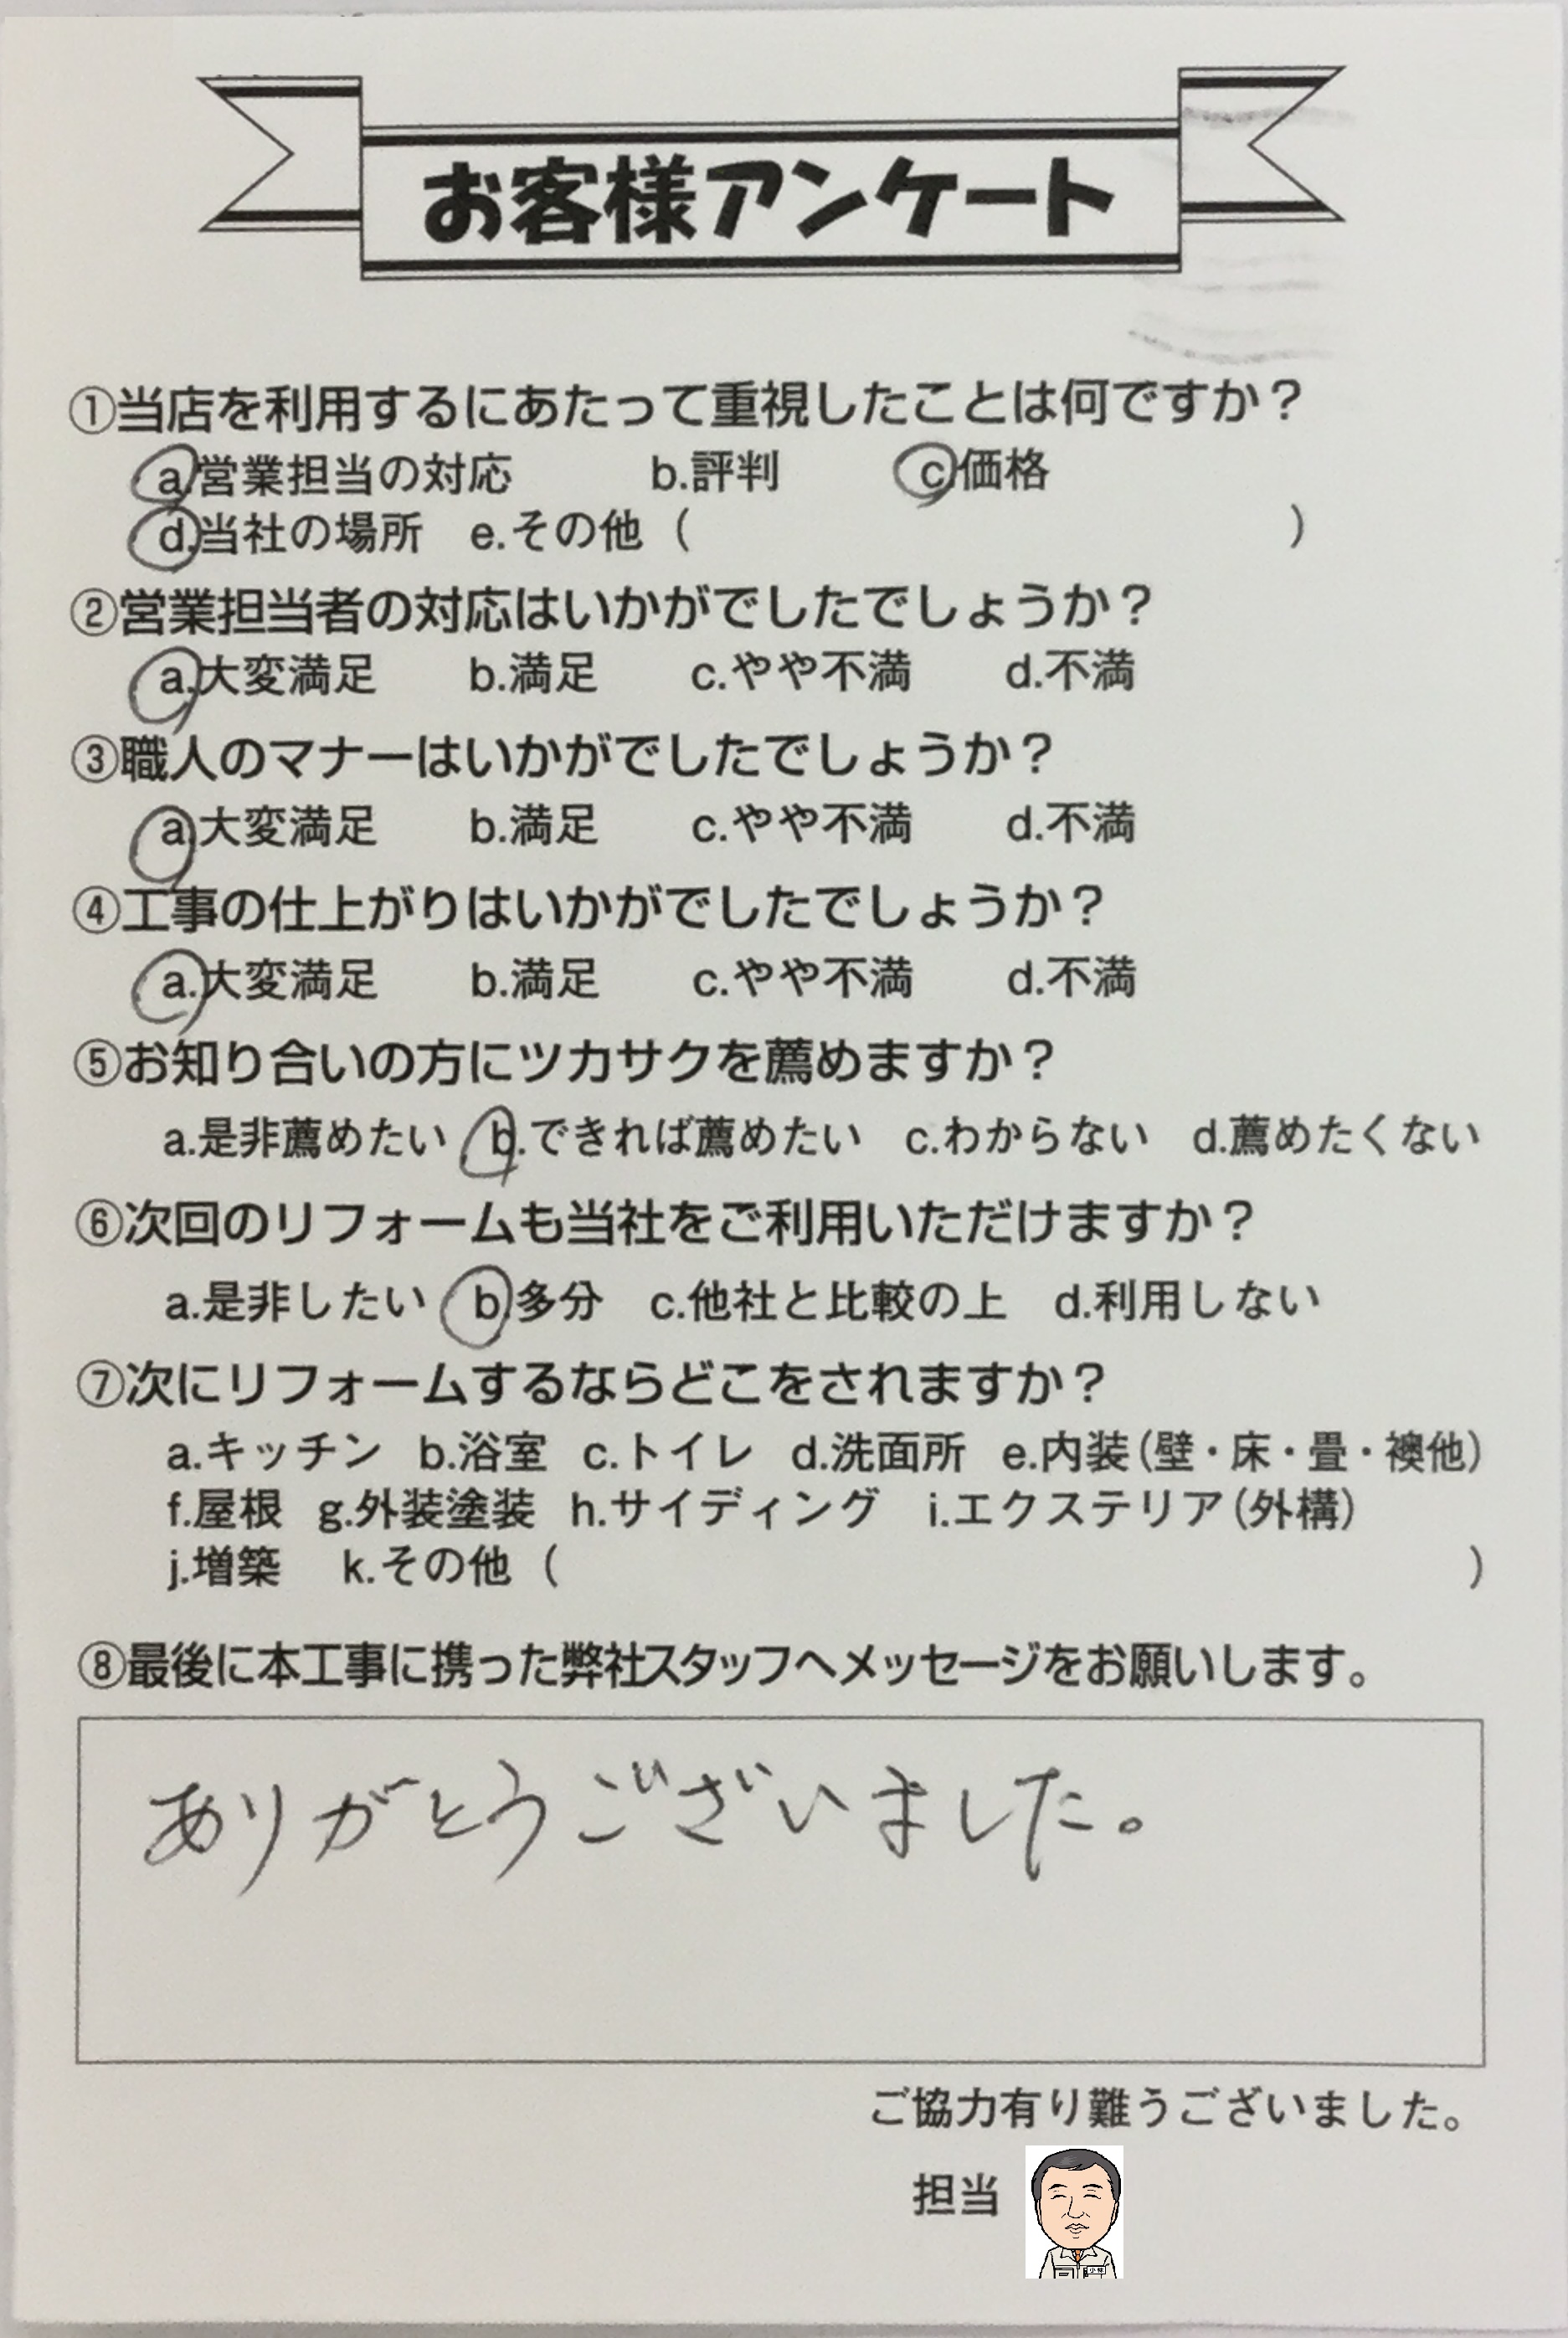 お客様アンケート
①当店を利用するにあたって重視したことは何ですか？
a.営業担当の対応 b.評判 c.価格
d.当社の場所 e.その他（ ）
②営業担当者の対応はいかがでしたでしょうか？
a.大変満足 b.満足 c.やや不満 d.不満
③職人のマナーはいかがでしたでしょうか？
a.大変満足 b.満足 c.やや不満 d.不満
④工事の仕上がりはいかがでしたでしょうか？
a.大変満足 b.満足 c.やや不満 d.不満
⑤お知り合いの方にツカサクを薦めますか？
a.是非薦めたい b.できれば薦めたい c.わからない d.薦めたくない
⑥次回のリフォームも当社をご利用いただけますか？
a.是非したい b.多分 c.他社と比較の上 d.利用しない
⑦次にリフォームするならどこをされますか？
a.キッチン b.浴室 c.トイレ d.洗面所 e.内装(壁・床・畳・襖他)
f.屋根 g.外装塗装 h.サイディング i.エクステリア(外構)
j.増築 k.その他（ ）
⑧最後に本工事に携った弊社スタッフへメッセージをお願いします。
ありがとうございました。
ご協力有り難うございました。
担当